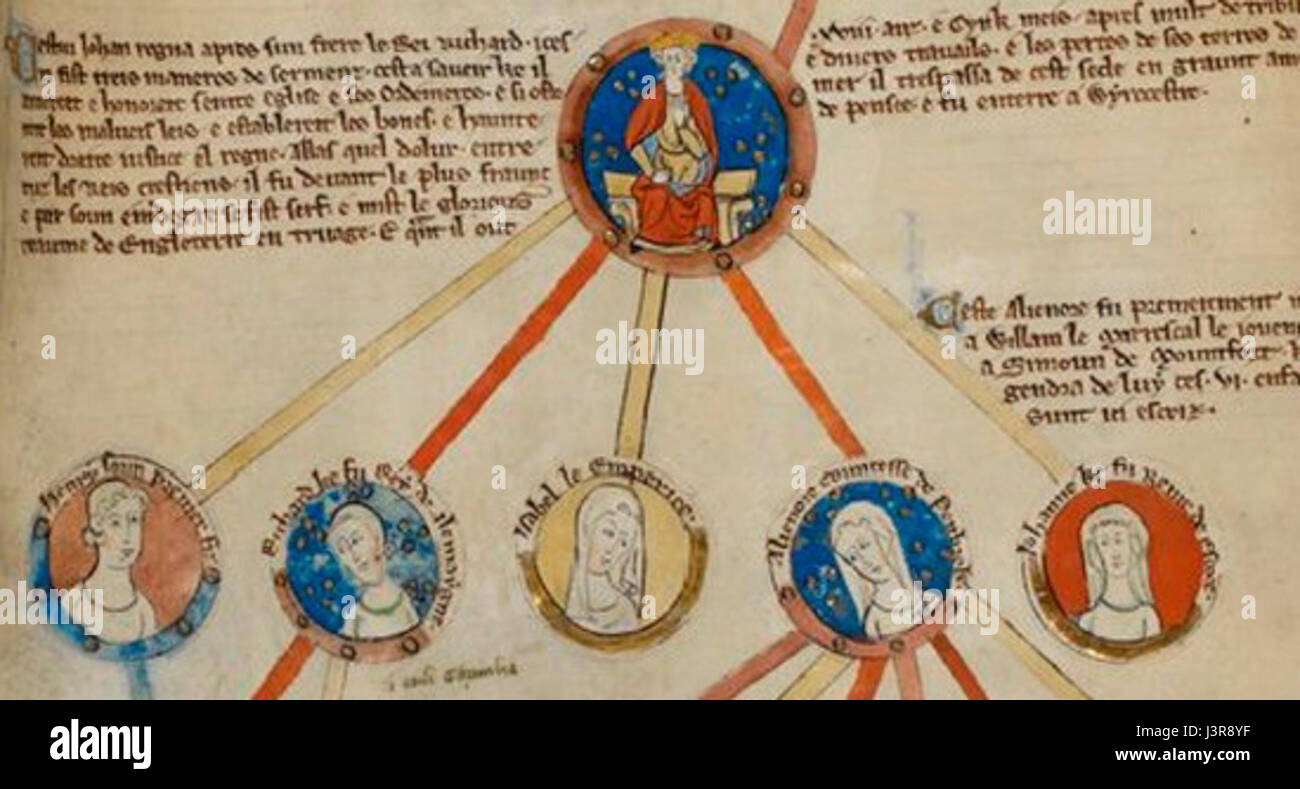 Cestui Johan regna apres sun frere le Rei Richard. ices
fist treis maneres de serment. cest a saveir ke il
e honorer seinte eglise e les Ordenerez. e si oste
roit les malveis leis. e establereit les bones. e
roit dreite justice el regne. Allas quel dolur. entre
tuz les reis crestiens. il fu devant le plus fraunc
e par soun se fist serf. e mist le glorious
reaume de Engleterre en truage. E quant il out
.xviii. anz. e Cynk meis. apres mult de tribu
e divers travails. e les pertes de ses terres de
mer il trespassa de cest secle en graunt am
de pensee. e fu enterre a Wyrcestre.
Ceste Alienore fu premerement
a Willam le Marescal le joven
a Simoun de Mountfort.
gendra de luy ces .vi. enfa
sunt ici escriz.
Henry soun premer fiz
Richard ke fu Rey de Alemaygne
Isabel le Emperice.
Alienore cuntesse de Penbroke
Johanne ke fu Reine de escoce
alamy
alamy
Image ID: J3R8YF
www.alamy.com